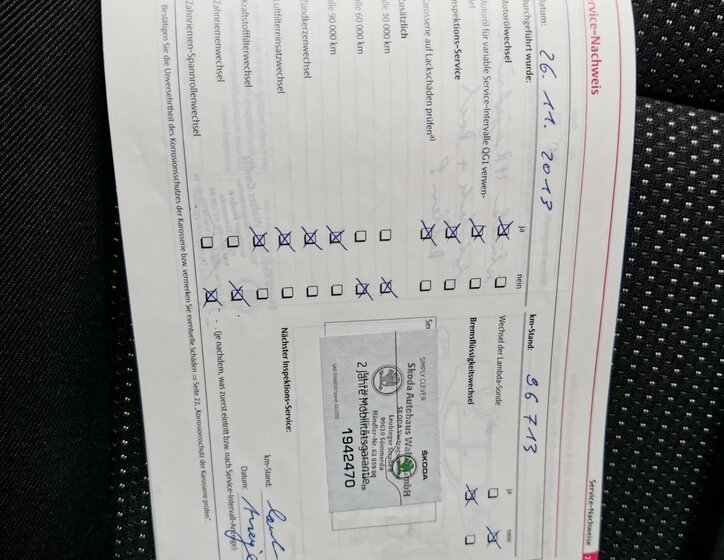 ervice-Nachweis
Service-Nachweise
Datum: 26. 11. 2013
km-Stand: 96713
Durchgeführt wurde:
ja
nein
Motorölwechsel
Motoröl für variable Service-Intervalle QG1 verwen-
det
Inspektions-Service
Karosserie auf Lackschäden prüfen a)
Zusätzlich
alle 30 000 km
alle 60 000 km
alle 90 000 km
Zündkerzenwechsel
Luftfiltereinsatzwechsel
Kraftstofffilterwechsel
Zahnriemenwechsel
Zahnriemen-Spannrollenwechsel
ja
nein
Wechsel der Lambda-Sonde
Bremsflüssigkeitswechsel
Ser
SIMPLY CLEVER
ŠKODA
Skoda Autohaus Wal GmbH
SKODA Vertrags
Leubinger Straße
99610 Sömmerda
Händler-Nr. 62
2 Jahre Mobilitätsgarantie
1942470
Nächster Inspektions-Service:
km-Stand: laut
Datum: Anzeige
(je nachdem, was zuerst eintritt bzw. nach Service-Intervall-Anzeige)
Bestätigen Sie die Unversehrtheit des Korrosionsschutzes der Karosserie bzw. vermerken Sie eventuelle Schäden ⇒ Seite 22, „Korrosionsschutz der Karosserie prüfen“.